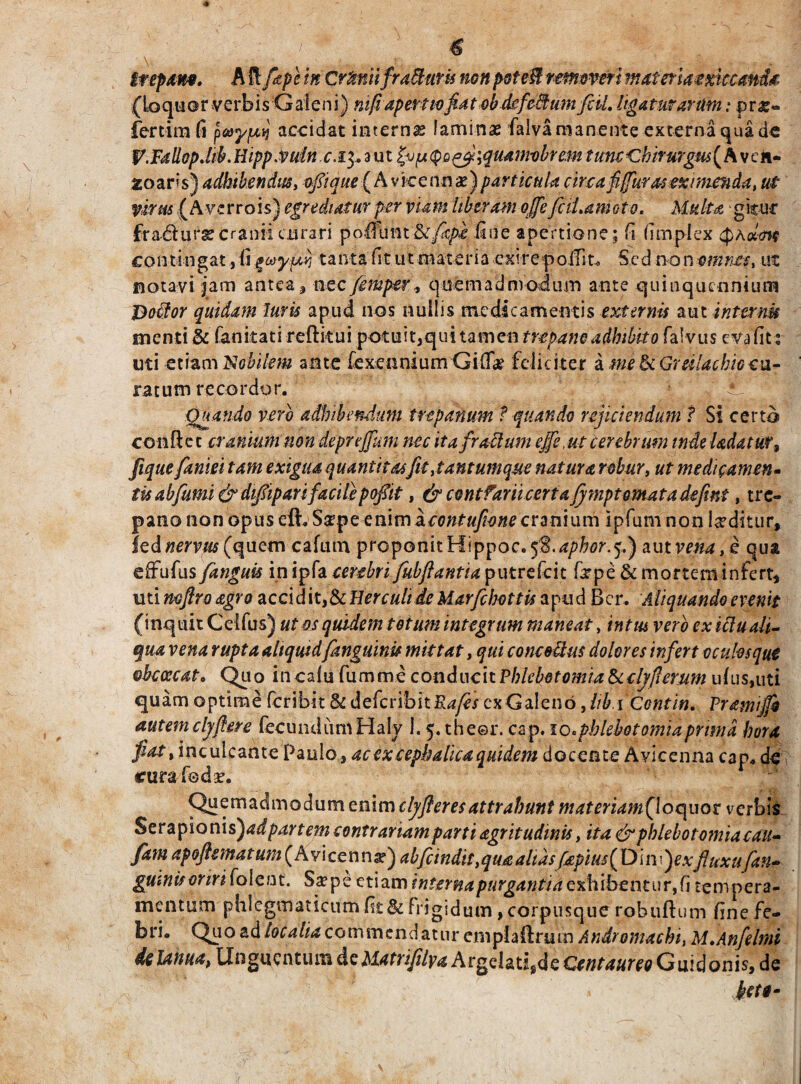 6
trepano. Ast sæpe in Cranii fracturis non potest removeri materia exiccanda
(loquor verbis Galeni) nisi apertio fiat ob defectum scil. ligaturarum: præ-
sertim si ῥωγμὴ accidat internæ laminæ salvâ manente externâ quâ de
V. Fallop. lib. Hipp. vuln. c. 13. aut quamobrem tunc Chirurgus (Aven-
zoaris) adhibendus, ofsique (Avicennæ) particula circa fissuras eximenda, ut
virus (Averrois) egrediatur per viam liberam osse scil. amoto. Multæ igitur
fracturæ cranii curari possunt & sæpè sine apertione; si simplex
contingat, si ῥωγμὴ tanta sit ut materia exire possit. Sed non omnes, ut
notavi jam antea, nec semper, quemadmodum ante quinquennium
Doctor quidam Iuris apud nos nullis medicamentis externis aut internis
menti & sanitati restitui potuit, qui tamen trepano adhibito salvus evasit:
uti etiam Nobilem ante sexennium Gissæ feliciter à me & Greilachio cu-
ratum recordor.
Quando vero adhibendum trepanum? quando rejiciendum? Si certò
constet cranium non depressum nec ita fractum esse, ut cerebrum inde lædatur,
sique saniei tam exigua quantitas sit, tantumque naturæ robur, ut medicamen-
tis absumi & dissipari facile possit, & contrarii certa symptomata desint, tre-
pano non opus est. Sæpe enim à contusione cranium ipsum non læditur,
sed nervus (quem casum proponit Hippoc. 58. aphor. 5.) aut vena, è qua
effusus sanguis in ipsa cerebri substantia putrescit sæpè & mortem infert,
uti nostro ægro accidit, & Herculi de Marschottis apud Ber. Aliquando evenit
(inquit Celsus) ut os quidem totum integrum maneat, intus verò ex ictu ali-
qua vena rupta aliquid sanguinis mittat, qui concretus dolores infert oculosque
obcæcat. Quo in casu summè conducit Phlebotomia & clysterum usus, uti
quàm optimè scribit & describit Rasis ex Galeno, lib. 1 Contin. Præmisso
autem clystere secundùm Haly l. 5. theor. cap. 10. phlebotomia primâ horâ
fiat, inculcante Paulo, ac ex cephalica quidem docente Avicenna cap. de
cura sodæ.
Quemadmodum enim clysteres attrahunt materiam (loquor verbis
Serapionis) ad partem contrariam parti ægritudinis, ita & phlebotomia cau-
sam apostematum (Avicennæ) abscindit, quæ aliàs sæpius (Dini) ex fluxu san-
guinis oriri solent. Sæpè etiam interna purgantia exhibentur, si tempera-
mentum phlegmaticum sit & frigidum, corpusque robustum sine fe-
bri. Quo ad localia commendatur emplastrum Andromachi, M. Anselmi
de Ianua, Unguentum de Matrisilva Argelati, de Centaureo Guidonis, de
beto-